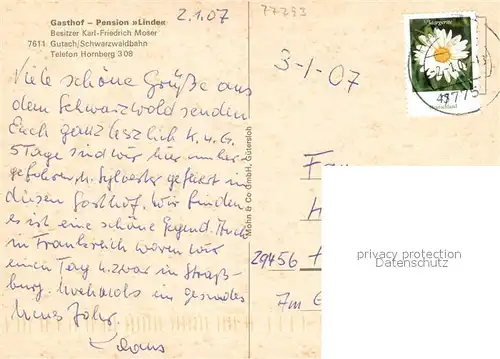 Gasthof – Pension »Linde«
Besitzer Karl-Friedrich Moser
7611 Gutach/Schwarzwaldbahn
Telefon Hornberg 308
2.1.07
77793
3-1-07
Margerite
45
Deutschland
77756
Viele schöne Grüße aus
dem Schwarzwald senden
Euch ganz herzlich K. u. G.
5 Tage sind wir hier umher-
gefahren u. Sylvester gefeiert in
diesem Gasthof. Wir finden
es ist eine schöne Gegend. Auch
in Frankreich waren wir
einen Tag u. zwar in Straß-
burg. Nochmals ein gesundes
neues Jahr.
Klaus
Mohn & Co GmbH, Gütersloh
Fam
29456
Am
privacy protection
Datenschutz